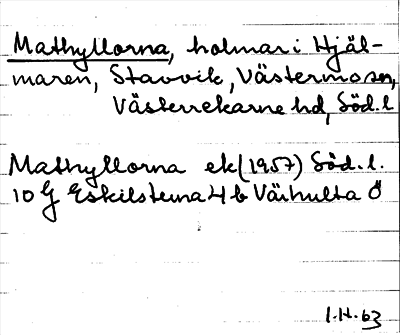 Mathyllorna, holmar i Hjäl-
maren, Stavvik, Västermo sn,
Västerrekarne hd, Söd. l
Mathyllorna ek (1957) Söd. l.
10 G Eskilstuna 4 b Värhulta Ö
1.H.63